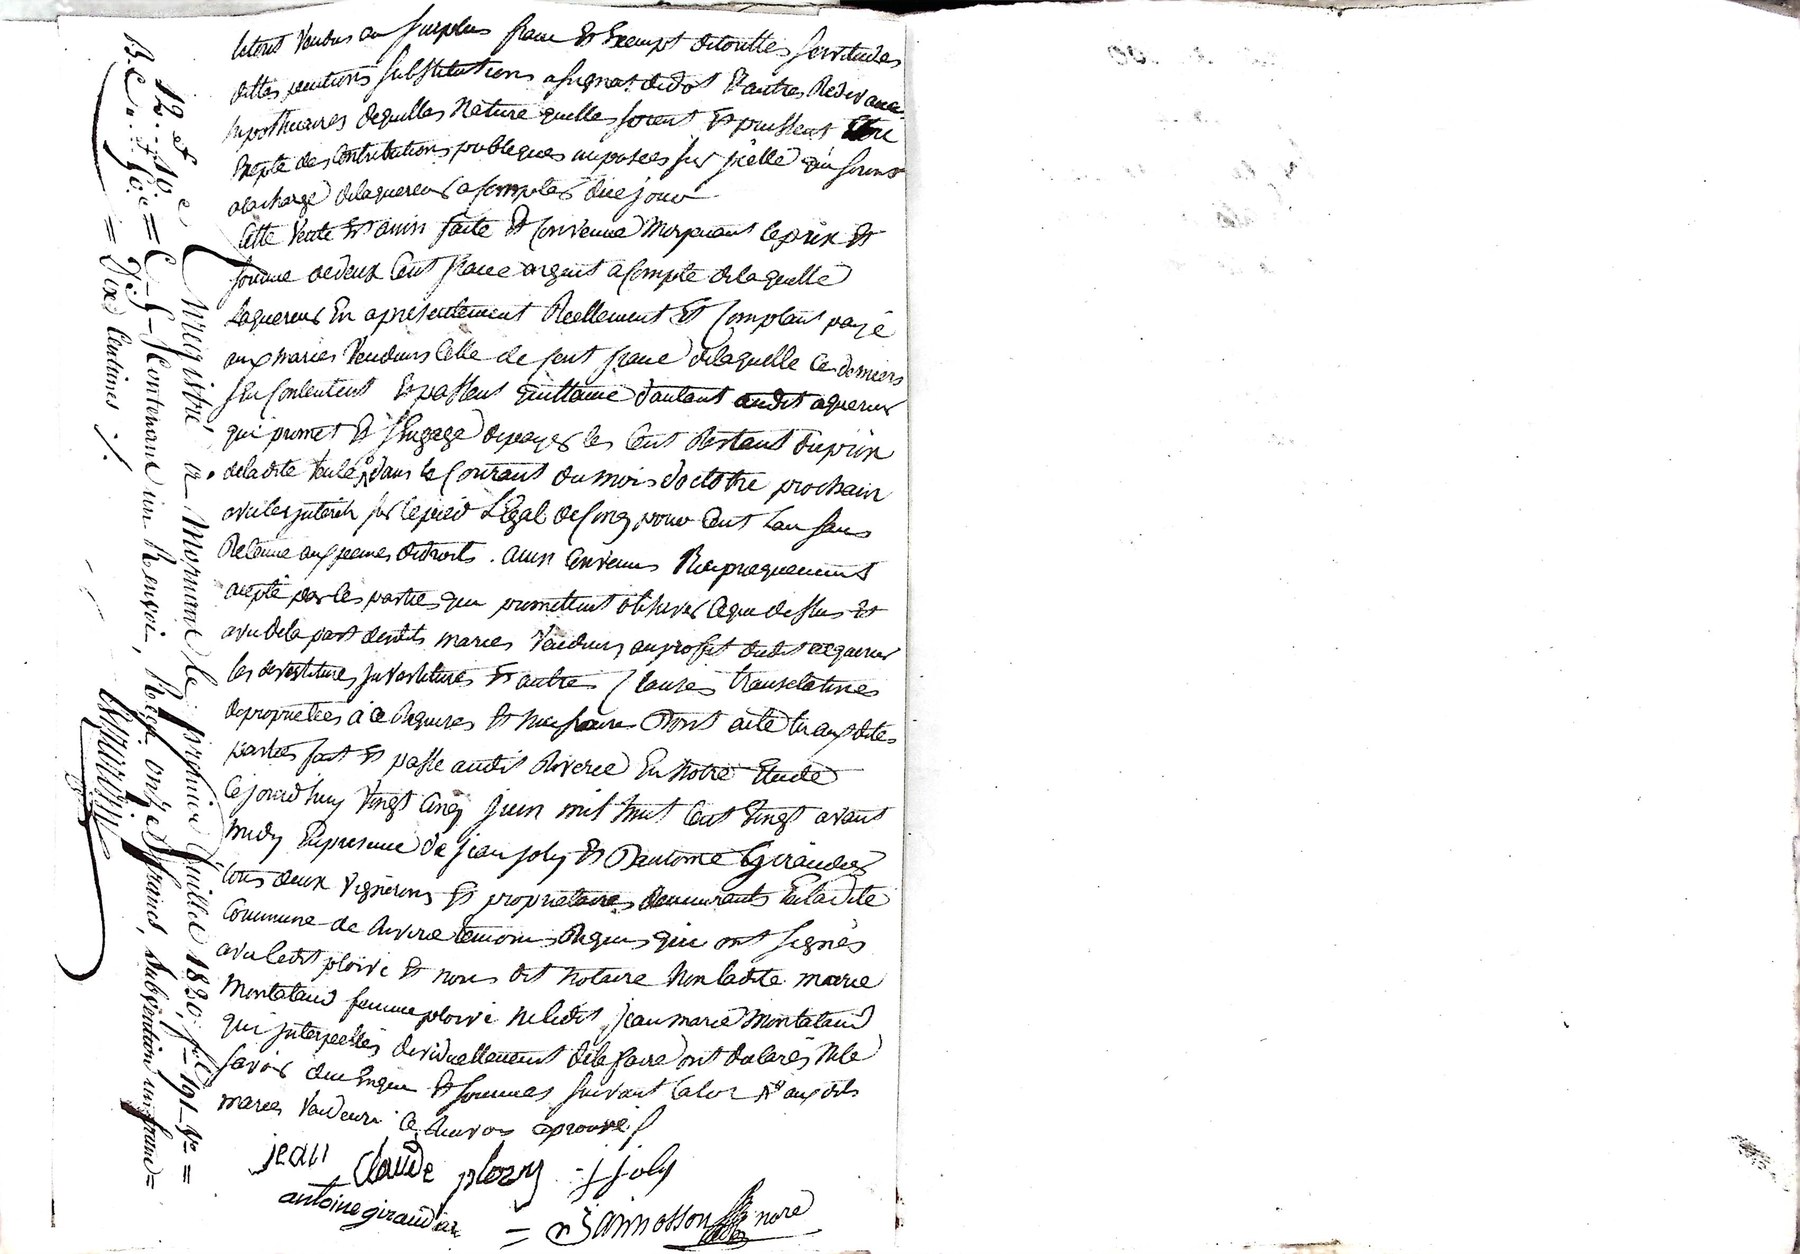 letout vendus au surplus franc et Exempt detouttes servitudes
dettes pentions substitutions assignat dedot et autres Redevances
hypothecaires dequelles Nature quelles soient et puissent Etre
Exepté des Contributions publiques imposées sur jcelle qui seront
alacharge delaquereur a Compter dece jour
Cette vente est ainsi faite et Convenue moyenant leprix et
somme de deux Cent franc argent a Compte delaquelle
laquereur En apresentement Reellement et Comptant payé
aux maries vendeurs Celle de sent franc delaquelle Ces derniers
sen Contentent et passent quittance d'autant audit aquereur
qui promet et s'Engage depayer les Cent Restant duprix
deladite vente dans le Courant du mois doctobre prochain
avec les jnterêts sur lepied légal de Cinq pour Cent l'an sans
Retenue aux peines dedroits. ainsi Convenus Reciproquement
accepté par les parties qui promettent observer Ceque dessus et
avec dela part desdits maries vendeurs auprofit dudit acquereur
les devestitures jnvestitures et autres Clauses translatives
depropriétées à ce Requises et nécessaires Dont acte auxdites
parties fait et passé audit Riverie En notre Etude
Cejourd'huy vingt Cinq juin mil huit Cent vingt avant
midy Enpresence de jean joly et D'antoine Giraudier
tous deux vignerons et propriétaires demeurants Enladite
Commune de Riverie temoins Requis qui ont signés
avec ledit et nous dit notaire Non ladite marie
montaland femme ni ledit jean marie montaland
qui jnterpellés de le faire ont déclarés Nele
savoir duement Enquis et sommés suivant laloi auxdits
maries vendeurs Ce Renvoi aprouvé
jean Claude j joly
antoine giraudier = Janosson nore
Enregistré à Mornant le premier Juillet 1820, fo 191 Vo =
12. et 10. e C. 5 Contenant un Renvoi, Reçu onze francs, subvention un franc =
= Dix Centimes ./.